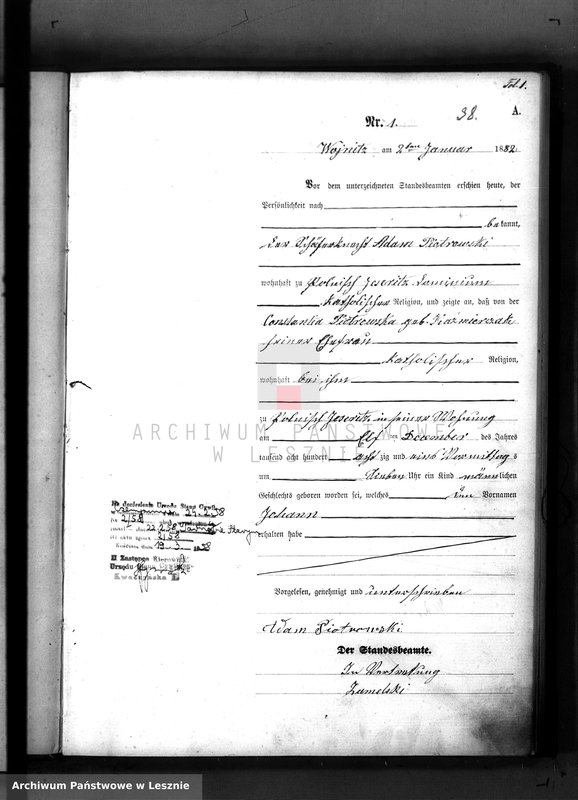 Fol 1.
38.
A.
Nr. 1.
Wojnitz am 2ten Januar 1882.
Vor dem unterzeichneten Standesbeamten erschien heute, der
Persönlichkeit nach
bekannt,
der Schäferknecht Adam Piotrowski
wohnhaft zu Polnisch Jeseritz Dominium
katholischer Religion, und zeigte an, daß von der
Constantia Piotrowska geb. Kaźmierczak
seiner Ehefrau
katholischer Religion,
wohnhaft bei ihm
zu Polnisch Jeseritz in seiner Wohnung
am Elf December des Jahres
tausend acht hundert achtzig und eins Vormittags
um sieben Uhr ein Kind männlichen
Geschlechts geboren worden sei, welches Vornamen
Johann
erhalten habe
Vorgelesen, genehmigt und unterschrieben
Adam Piotrowski
Der Standesbeamte.
In Vertretung
Zamelski
Na doniesienie Urzędu Stanu
2/58
22 2 58
2/58
19 3 1958
II Zastępca Kierownik
Urzędu Stanu
ARCHIWUM PAŃSTWOWE
W LESZNIE
Archiwum Państwowe w Lesznie